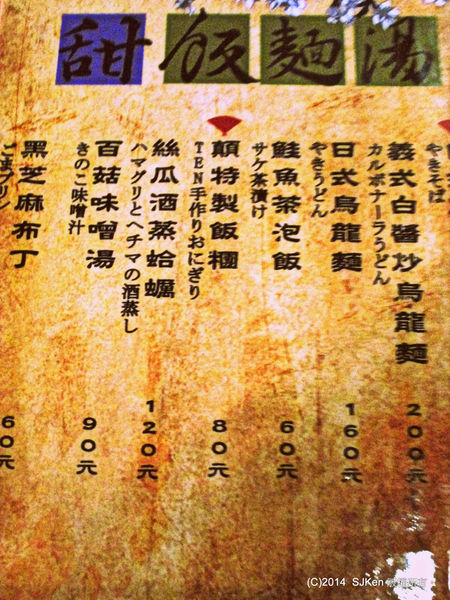 湯 麵 飯 甜
やきそば
義式白醬炒烏龍麵
カルボナーラうどん
200元
日式烏龍麵
やきうどん
160元
鮭魚茶泡飯
サケ茶漬け
60元
顛特製飯糰
TEN手作りおにぎり
80元
絲瓜酒蒸蛤蠣
ハマグリとヘチマの酒蒸し
120元
百菇味噌湯
きのこ味噌汁
90元
黑芝麻布丁
ごまプリン
60元
(C)2014 SJKen